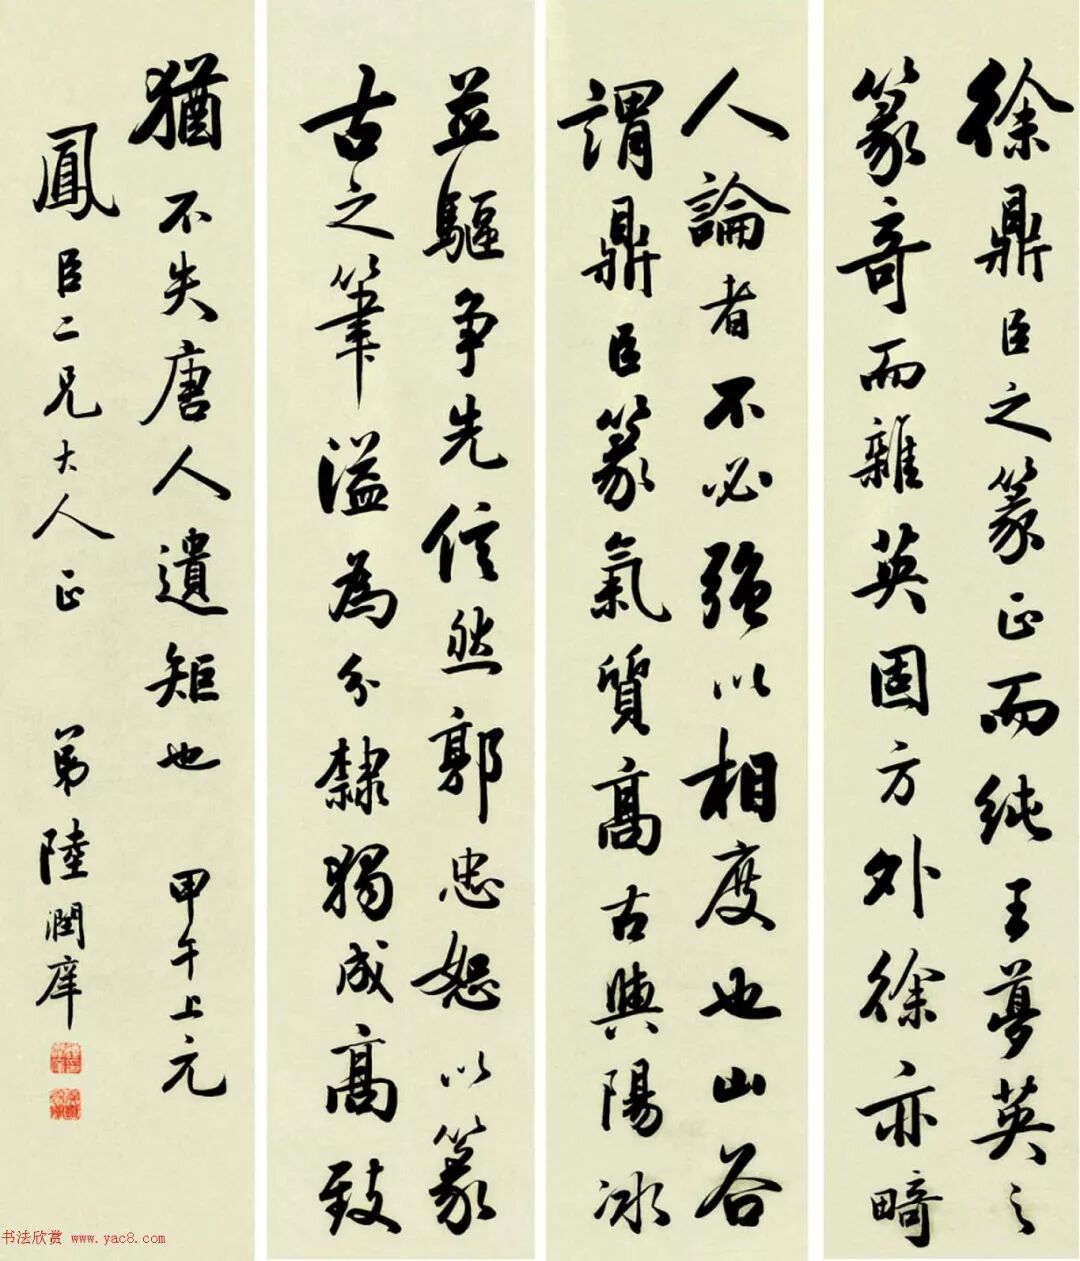 徐鼎臣之篆正而純王夢英之
篆奇而雜英固方外徐亦畸
人論者不必強以相度也山谷
謂鼎臣篆氣質高古與陽冰
並驅爭先信然郭忠恕以篆
古之筆溢為分隸獨成高致
猶不失唐人遺矩也 甲午上元
鳳臣二兄大人正 弟陸潤庠
书法欣赏 www.yac8.com